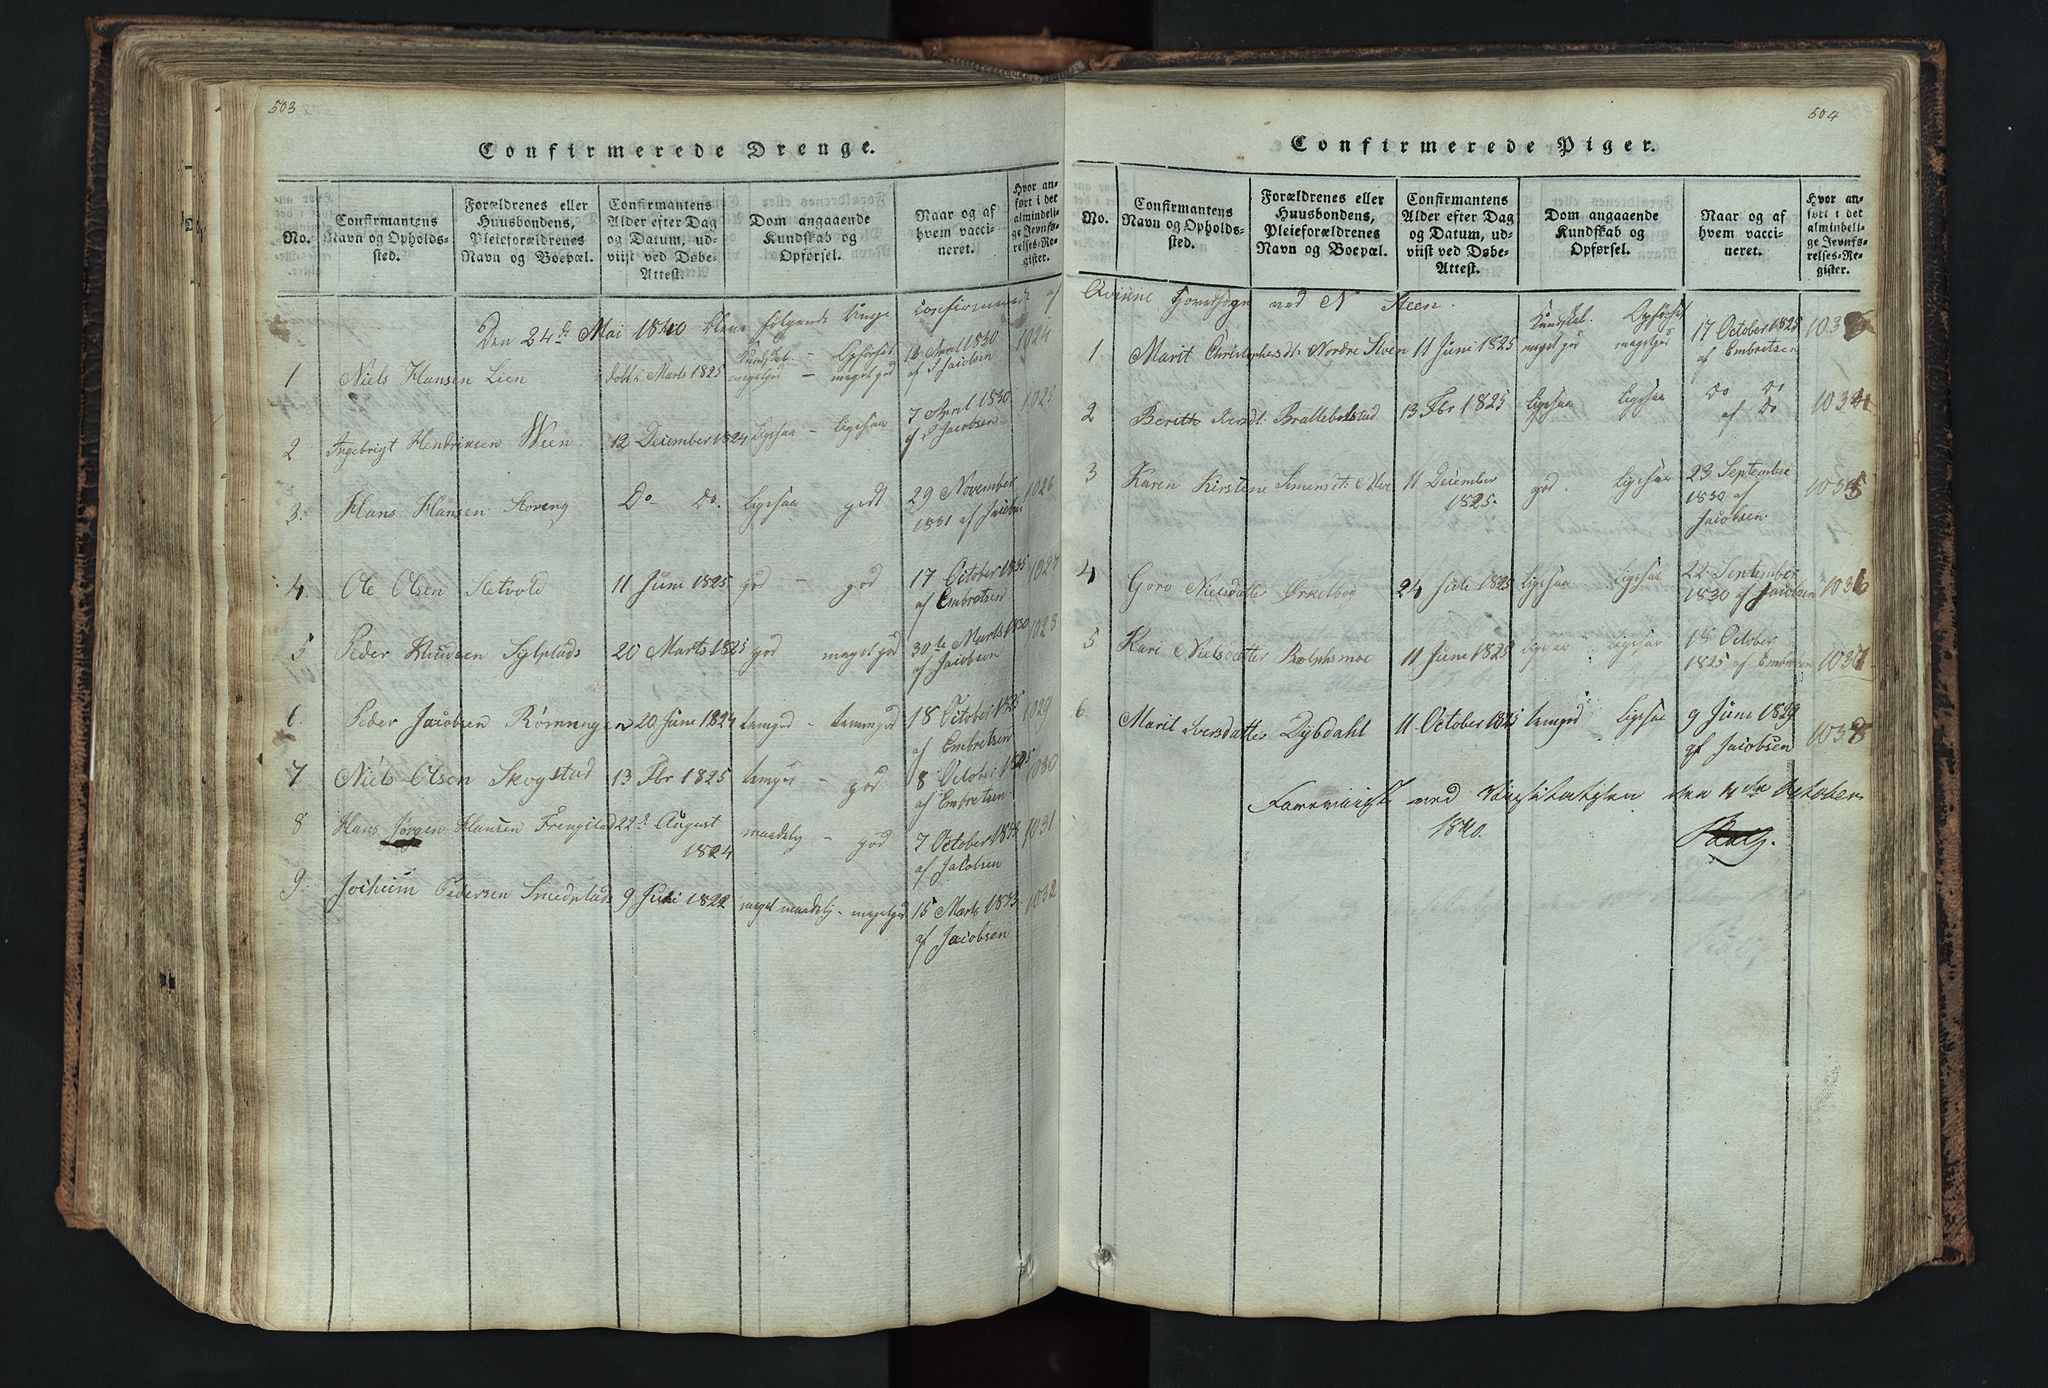 503
Confirmerede Drenge.
No.
Confirmantens Navn og Opholdssted.
Forældrenes eller Huusbondens, Pleieforældrenes Navn og Boepæl.
Confirmantens Alder efter Dag og Datum, udviist ved Døbe-Attest.
Dom angaaende Kundskab og Opførsel.
Naar og af hvem vaccineret.
Hvor anført i det almindelige Jevnførelses-Register.
Den 24de Mai 1840 bleve følgende unge confirmerede af
1 Niels Hansen Lien døbt i Marts 1825 Kundskab megetgod – Opførsel meget god 13 April 1830 af Jacobsen 1024
2 Ingebrigt Hendriksen Wien 12 December 1824 ligesaa – ligesaa 7 April 1830 af Jacobsen 1025
3. Hans Hansen Storeng Do Do. ligesaa godt 29 November 1831 af Jacobsen 1026
4. Ole Olsen Setvold 11 Juni 1825 god – god 17 October 1825 af Embretsen 1027
5 Peder Knudsen Sylplads 20 Marts 1825 god meget god 30te Marts 1830 af Jacobsen 1028
6. Peder Jacobsen Rønningen 20 Juni 1824 temgod – temmegod 18 October 1825 af Embretsen 1029
7 Niels Olsen Skogstad 13 Fbr 1825 temgod – god 18 October 1825 af Embretsen 1030
8 Hans Jørgen Hansen Frengstad 22d August 1824 maadelig – god 7 October 1832 af Jacobsen 1031
9. Jochum Pedersen Smedplads 9 Juli 1822 meget maadelig – megetgod 15 Marts 1833 af Jacobsen 1032
504
Confirmerede Piger.
No.
Confirmantens Navn og Opholdssted.
Forældrenes eller Huusbondens, Pleieforældrenes Navn og Boepæl.
Confirmantens Alder efter Dag og Datum, udviist ved Døbe-Attest.
Dom angaaende Kundskab og Opførsel.
Naar og af hvem vaccineret.
Hvor anført i det almindelige Jevnførelses-Register.
Qvinne Hovedsogn ved N Steen.
1 Marit Christophersdt: Nordre Steen 11 Juni 1825 Kundskab. meget god Opførsel megetgod 17 October 1825 af Embretsen 1033
2 Berith Bratlebolstad 13 Fbr 1825 ligesaa ligesaa Do Do af Do 1034
3 Karen Kirstene Simensdt: 11 December 1825. god. ligesaa 23 September 1830 af Jacobsen 1035
4 Goro Nielsdatter Ørkelbog 24 Juli 1825 ligesaa ligesaa 22 September 1830 af Jacobsen 1036
5 Kari Nielsdatter Rolphsmoe 11 Juni 1825 ligesaa ligesaa 18 October 1825 af Embretsen 1037
6. Marit Iversdatter Dybdahl 11 October 1825 temgod ligesaa 9 Juni 1829 af Jacobsen 1038
Foreviist ved Visitatsen den 4de October
1840.